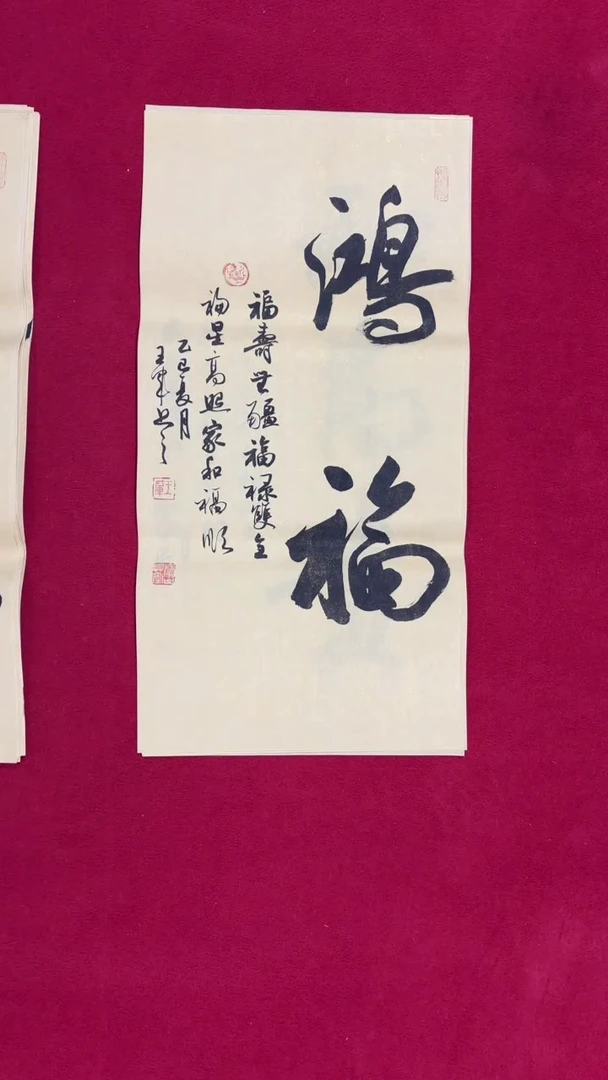 鸿福
福壽無疆福禄雙全
福星高照家和福順
乙巳夏月
王军书